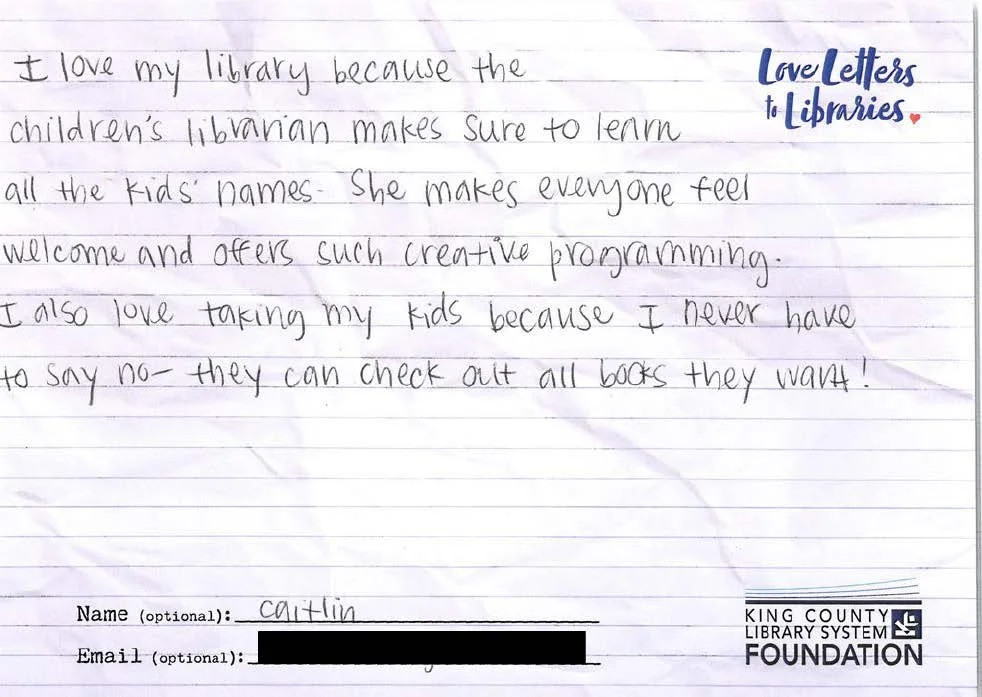 I love my library because the
children's librarian makes sure to learn
all the kids' names. She makes everyone feel
welcome and offers such creative programming.
I also love taking my kids because I never have
to say no- they can check out all books they want!
Love Letters
to Libraries
Name (optional): Caitlin
Email (optional):
KING COUNTY
LIBRARY SYSTEM
FOUNDATION